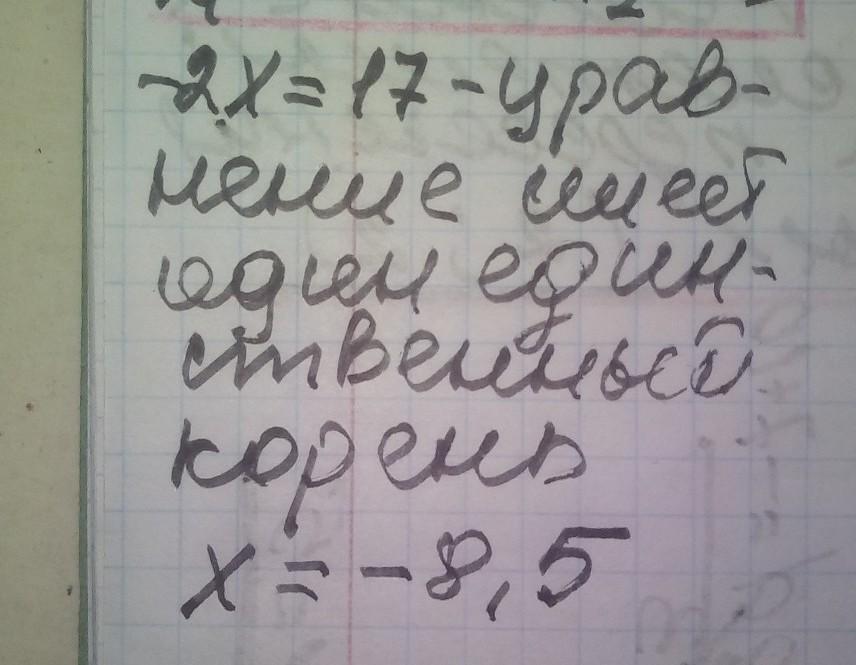 -2х=17 - урав-
нение имеет
один един-
ственный
корень
х=-8,5